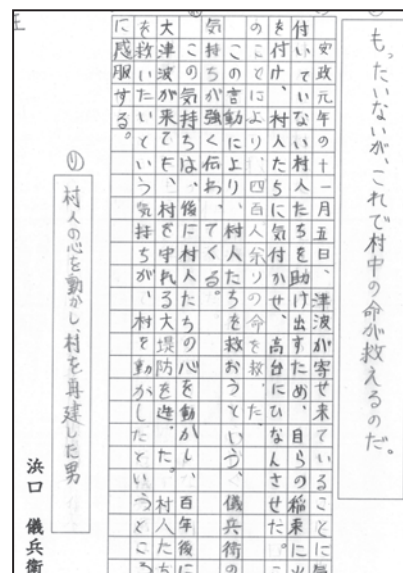 もったいないが、これで村中の命が救えるのだ。
安政元年の十一月五日、津波が寄せ来ていることに気
付いていない村人たちを助け出すため、自らの稲束に火
を付け、村人たちに気付かせ、高台にひなんさせた。こ
のことにより、四百人余りの命を救った。
この言動により、村人たちを救おうという、儀兵衛の
気持ちが強く伝わってくる。
この気持ちは、後に村人たちの心を動かし、百年後に
大津波が来ても、村を守れる大堤防を造った。村人たち
を救いたいという気持ちが、村を動かしたというところ
に感服する。
(り)
村人の心を動かし、村を再建した男
浜口 儀兵衛